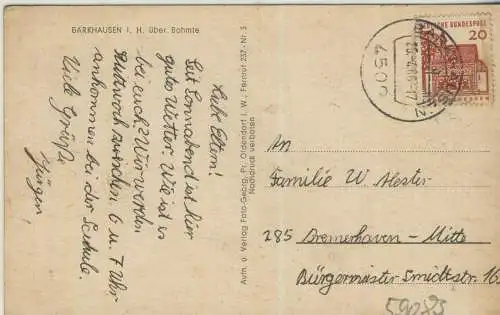 BARKHAUSEN i. H. über Bohmte
Liebe Eltern!
Seit Sonnabend ist hier
gutes Wetter. Wie ist es
bei euch? Wir werden
Mittwoch zwischen 6 u. 7 Uhr
ankommen bei der Schule.
Viele Grüße
Jürgen!
Aufn. u. Verlag Foto-Georg, Pr. Oldendorf i. W., Fernruf 237 - Nr. 5
Nachdruck verboten
DEUTSCHE BUNDESPOST
20
4509
An
Familie W.
285 Bremerhaven-Mitte
Bürgermeister Smidtstr. 16